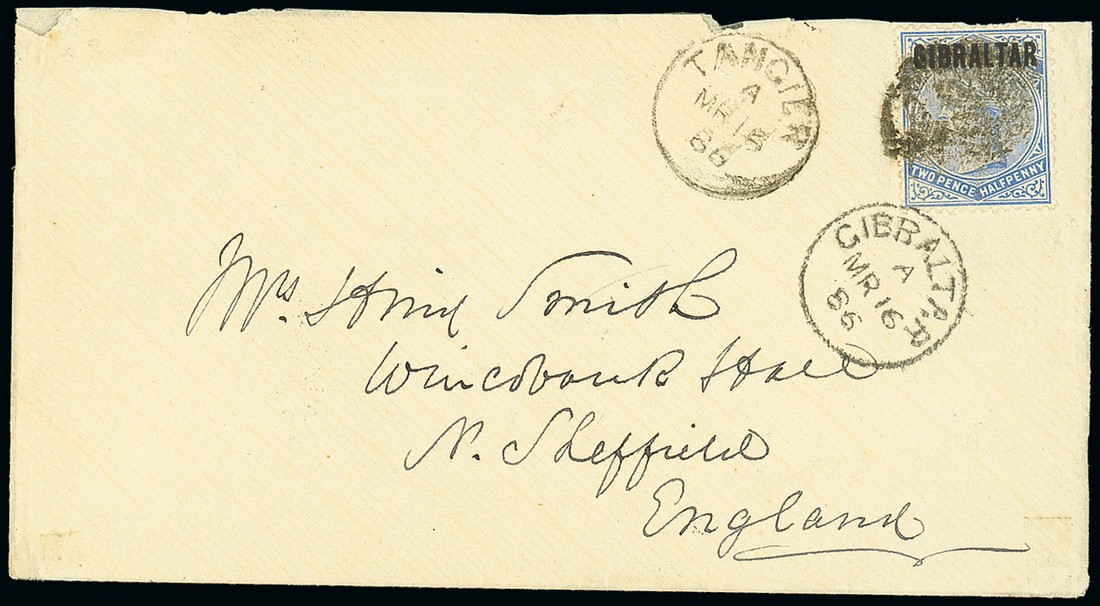 TANGIER
A
MR 15
86
GIBRALTAR
TWO PENCE HALFPENNY
GIBRALTAR
A
MR 16
86
Mrs. Smith
Wincobank Hall
N. Sheffield
England